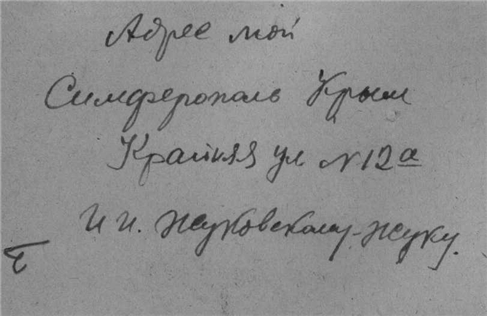 Адрес мой
Симферополь Крым
Крайняя ул N12а
И И. Жуковскому-Жуку.